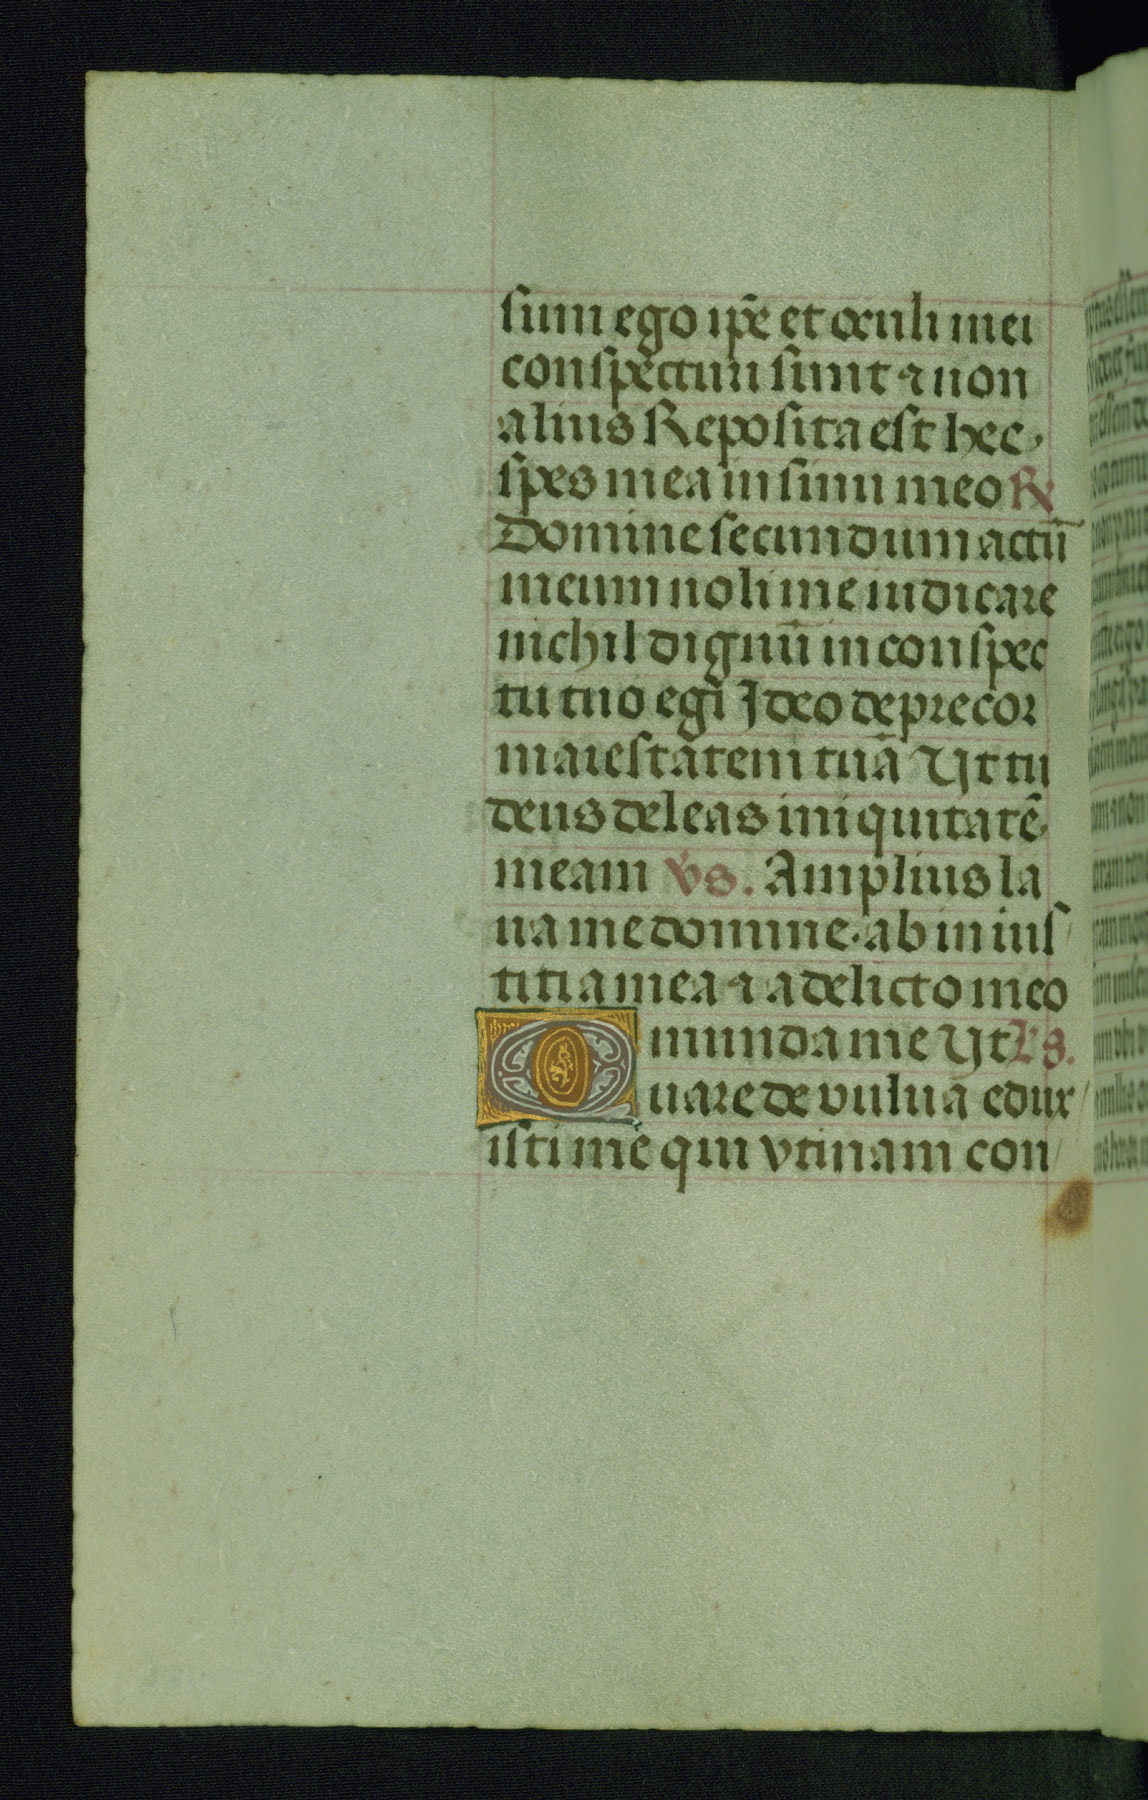 sum ego ip̃e et oculi mei
conspecturi sunt ⁊ non
alius Reposita est hec
spes mea in sinu meo ℟
Domine secundum actū
meum noli me iudicare
nichil dignū in conspec
tu tuo egi Ideo deprecor
maiestatem tuā Ut tu
deus deleas iniquitatē
meam v̓s. Amplius la
ua me domine ab inius
titia mea ⁊ a delicto meo
munda me Ut L's.
Quare de vulua edux
isti me qui vtinam con